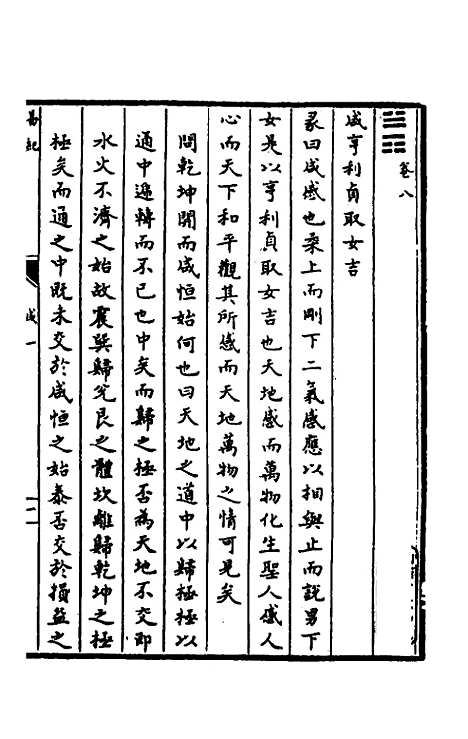 ䷞ 卷八
咸亨利貞取女吉
彖曰咸感也柔上而剛下二氣感應以相與止而說男下
女是以亨利貞取女吉也天地感而萬物化生聖人感人
心而天下和平觀其所感而天地萬物之情可見矣
問乾坤開而咸恒始何也曰天地之道中以歸極極以
通中遞轉而不已也中矣而歸之極否為天地不交即
水火不濟之始故震巽歸兌艮之體坎離歸乾坤之極
極矣而通之中既未交於咸恒之始泰否交於損益之
易紀
咸一